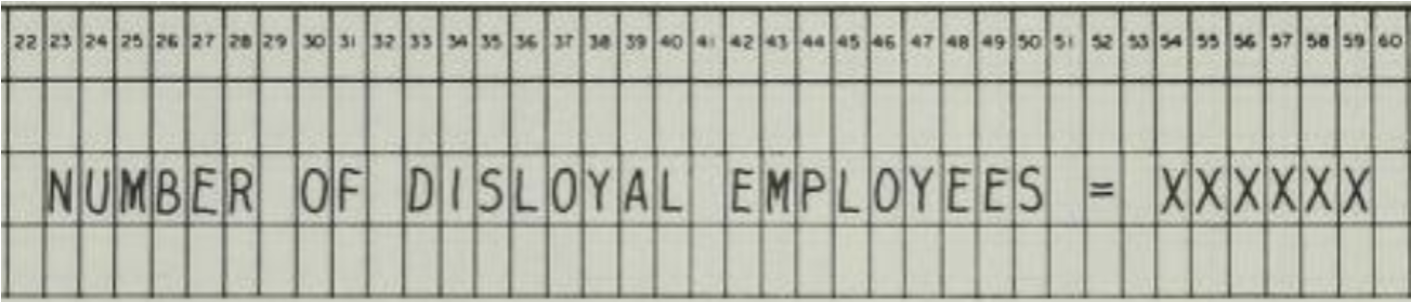 22 23 24 25 26 27 28 29 30 31 32 33 34 35 36 37 38 39 40 41 42 43 44 45 46 47 48 49 50 51 52 53 54 55 56 57 58 59 60
NUMBER OF DISLOYAL EMPLOYEES = XXXXXX